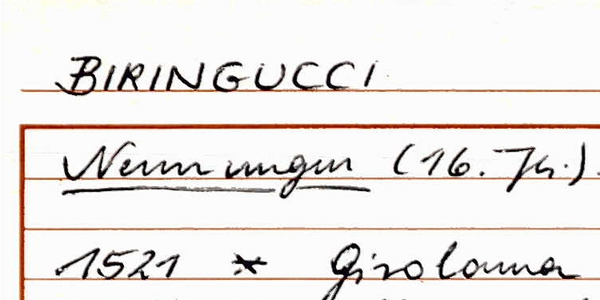 BIRINGUCCI
Nennungen (16. Jh.).
1521 * Girolama